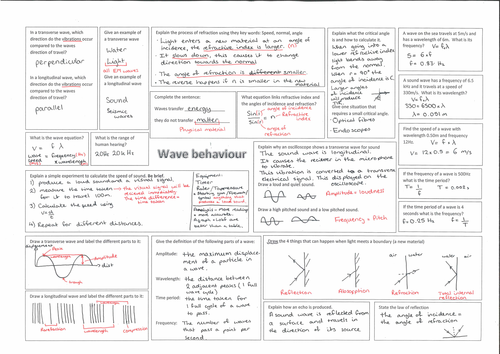 In a transverse wave,
which direction do
the vibrations occur
compared to the waves
direction of travel?
perpendicular
In a longitudinal wave,
which direction do the
vibrations occur
compared to the waves
direction of travel?
parallel
Give an example of
a transverse wave
Water
Light
all EM waves
Give an example of
a longitudinal
wave
Sound
Seismic
waves
Explain the process of refraction using they key words: Speed, normal, angle
Light enters a new material at an angle of
incidence, the refractive index is larger. (n)
It slows down, this causes it to change
direction towards the normal
The angle of refraction is smaller.
The reverse happens if n is smaller in the new
material
Complete the sentence:
Waves transfer energy
they do not transfer matter.
Physical material
What equation links refractive index and
the angles of incidence and refraction?
Sin(i) = n
Sin(r)
angle of incidence
Refractive index
angle of refraction
Explain what the critical
angle is and how to
calculate it.
When going into a
lower refractive index
light bends away
from the normal.
When r = 90° the
angle of incidence is C.
Larger angles
of incidence
will produce
TIR.
Give one situation that
requires a small critical angle.
Optical fibres
Endoscopes
A wave on the sea travels at 5m/s and
has a wavelength of 6km. What is its
frequency?
V = fλ
5 = 6 × f
f = 0.83 Hz
A sound wave has a frequency of 6.5
kHz and it travels at a speed of
330m/s. What is its wavelength?
V = fλ
330 = 6500 × λ
λ = 0.051 m
Find the speed of a wave with
wavelength 0.50m and frequency
12Hz.
V = fλ
V = 12 × 0.5 = 6 m/s
If the frequency of a wave is 500Hz
what is the time period?
T = 1/f
T = 0.002 s
If the time period of a wave is 4
seconds what is the frequency?
f = 0.25 Hz
f = 1/T
What is the wave equation?
V = f λ
wave speed = frequency × wavelength
What is the range of
human hearing?
20Hz 20k Hz
Wave behaviour
Explain why an oscilloscope shows a transverse wave for sound
The sound wave is longitudinal.
It causes the receiver in the microphone
to vibrate.
This vibration is converted to a transverse
electrical signal. This is displayed on the
oscilloscope.
Draw a loud and quiet sound.
Amplitude = loudness
Draw a high pitched sound and a low pitched sound.
Frequency = Pitch
Explain a simple experiment to calculate the speed of sound. Be brief.
1) produce a loud sound and a visual signal.
2) measure the time taken
for it to travel 100m.
3) Calculate the speed using
4) Repeat for different distances.
Equipment:
Timer
Draw a transverse wave and label the different parts to it:
Peak
Wavelength
Amplitude
Trough
Draw a longitudinal wave and label the different parts to it:
Rarefaction
Wavelength
Compression
Give the definition of the following parts of a wave:
Amplitude: the maximum displace-
ment of a particle in
a wave.
Wavelength: the distance between
2 adjacent peaks (1 full
wave cycle)
Time period: the time taken for
1 full cycle of a wave
to pass.
Frequency: The number of waves
that pass a point per
second
Draw the 4 things that can happen when light meets a boundary (a new material)
Reflection
Absorption
air water
Refraction
water air
Total internal
reflection
Explain how an echo is produced.
A sound wave is reflected from
a surface and travels in
the direction of its source.
State the law of reflection
the angle of incidence =
the angle of reflection